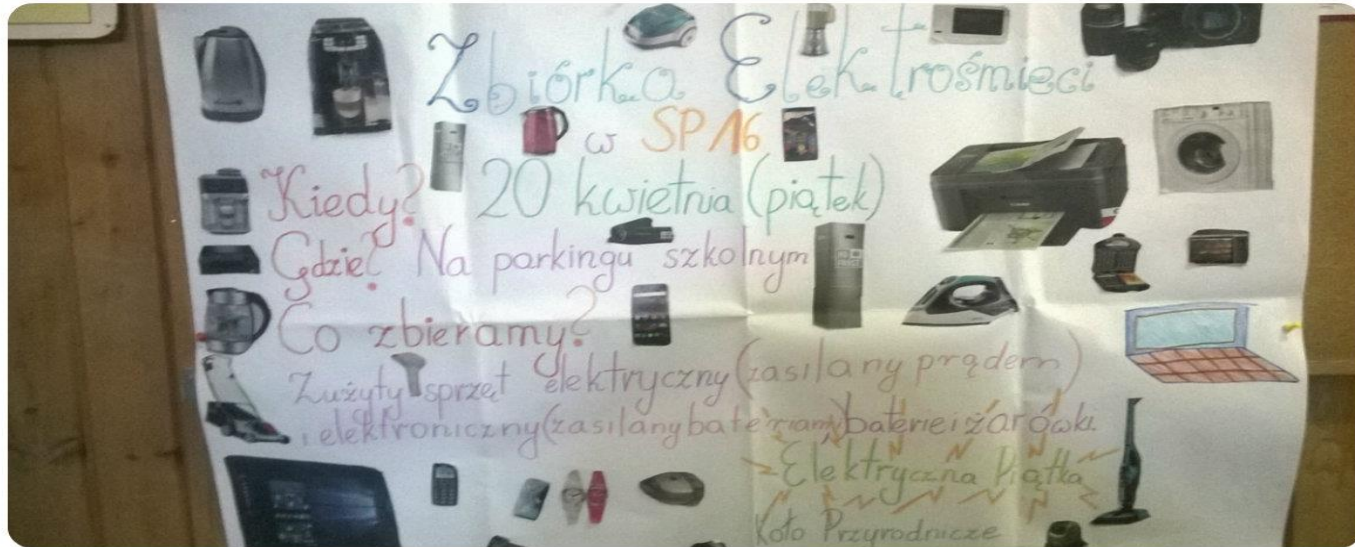 Zbiórka Elektrośmieci
w SP 16
Kiedy? 20 kwietnia (piątek)
Gdzie? Na parkingu szkolnym
Co zbieramy?
Zużyty sprzęt elektryczny (zasilany prądem)
i elektroniczny (zasilany bateriami) baterie i żarówki.
Elektryczna Piątka
Koło Przyrodnicze